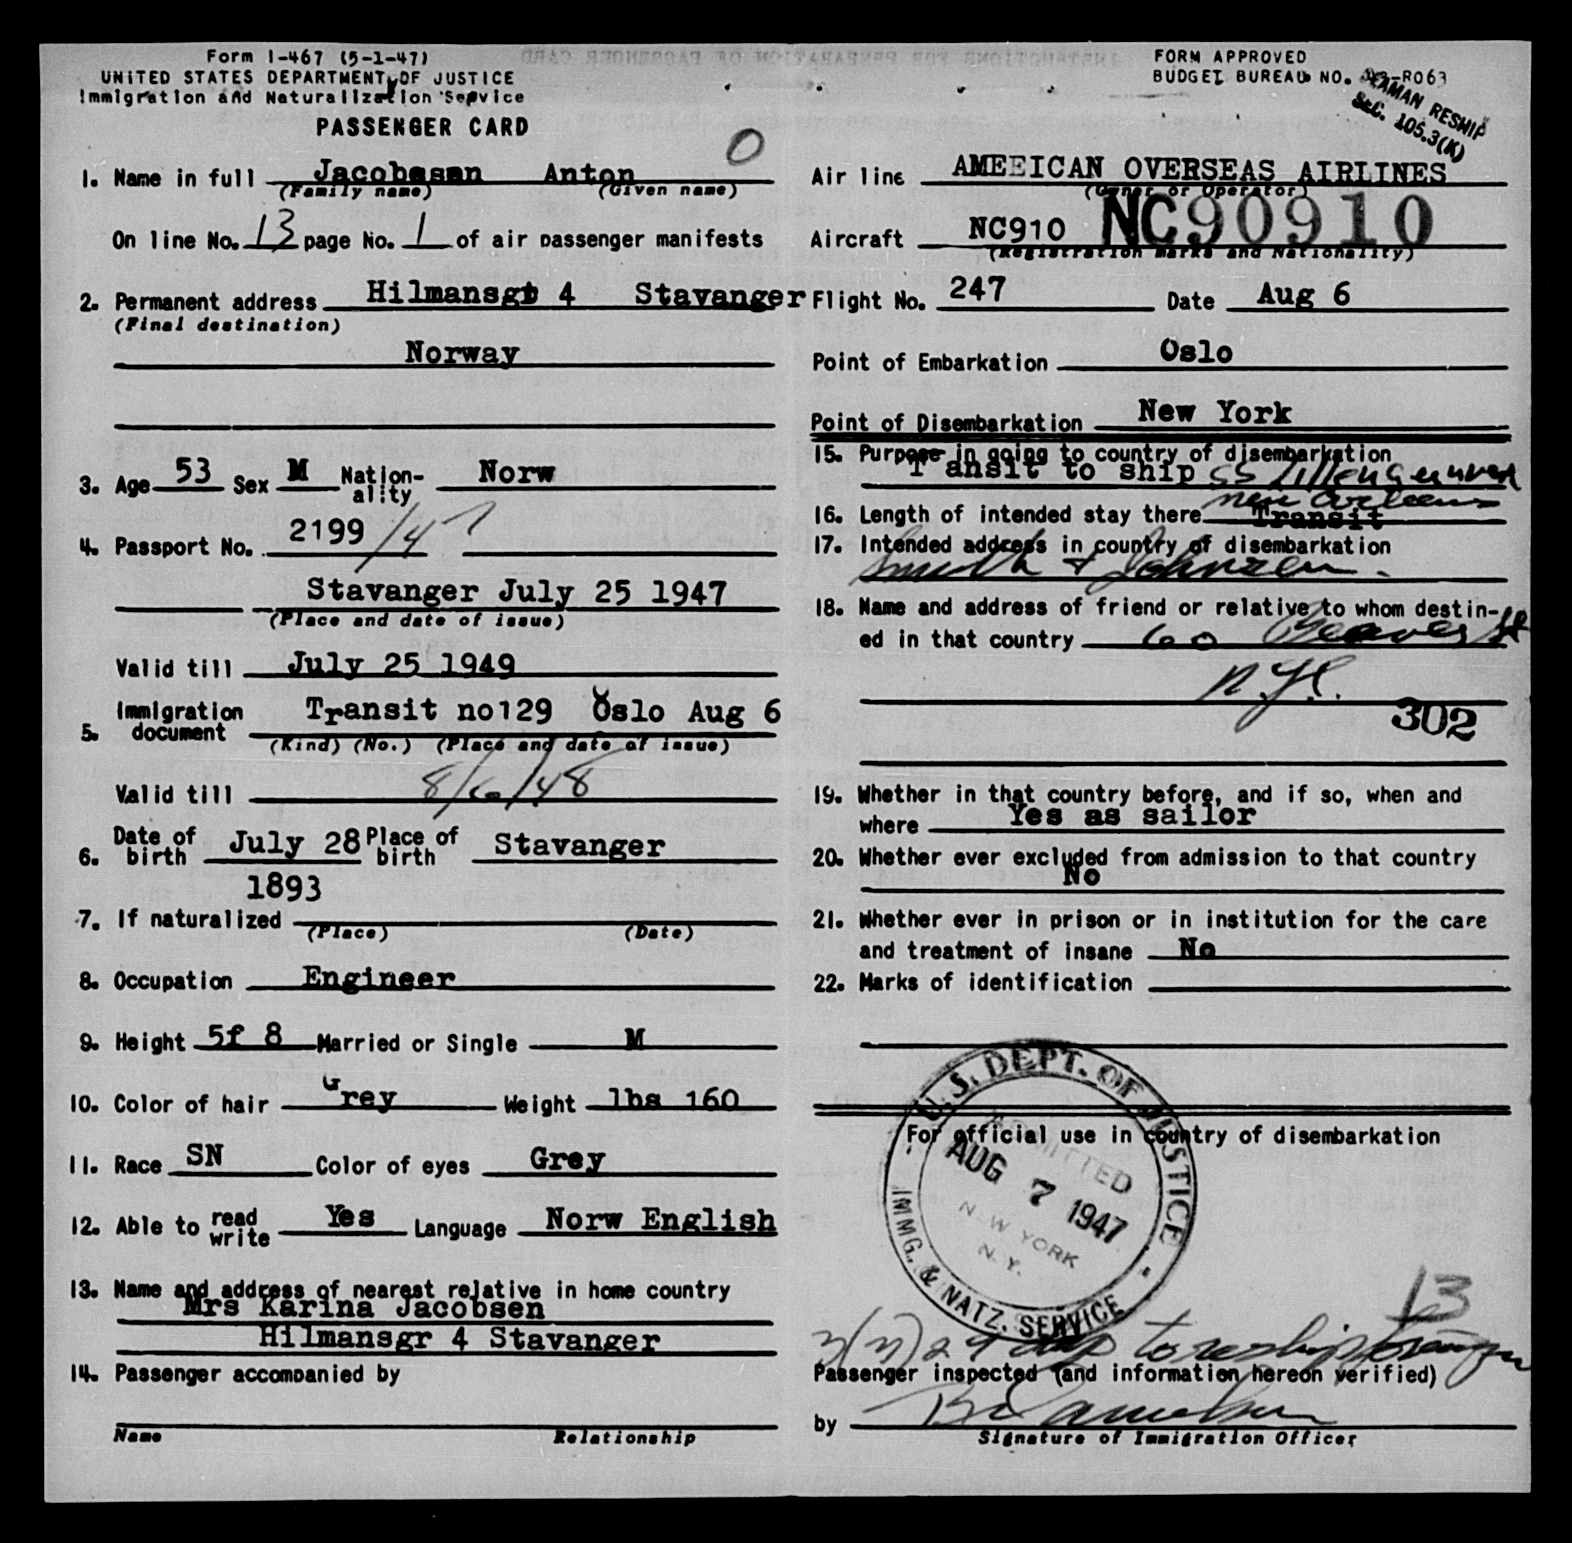 Form I-467 (5-1-47)
UNITED STATES DEPARTMENT OF JUSTICE
Immigration and Naturalization Service
PASSENGER CARD
0
1. Name in full Jacobsen Anton
(Family name) (Given name)
On line No. 13 page No. 1 of air passenger manifests
2. Permanent address Hilmansgt 4 Stavanger
(Final destination)
Norway
3. Age 53 Sex M Nation-ality Norw
4. Passport No. 2199/47
Stavanger July 25 1947
(Place and date of issue)
Valid till July 25 1949
5. Immigration document Transit no129 Oslo Aug 6
(Kind) (No.) (Place and date of issue)
Valid till 8/6/48
6. Date of birth July 28 Place of birth Stavanger
1893
7. If naturalized
(Place) (Date)
8. Occupation Engineer
9. Height 5f 8 Married or Single M
10. Color of hair Grey Weight lbs 160
11. Race SN Color of eyes Grey
12. Able to read write Yes Language Norw English
13. Name and address of nearest relative in home country
Mrs Karina Jacobsen
Hilmansgr 4 Stavanger
14. Passenger accompanied by
Name Relationship
FORM APPROVED
BUDGET BUREAU NO. -R063
SEAMAN RESHIP
SEC. 105.3(K)
Air line AMEEICAN OVERSEAS AIRLINES
(Owner or Operator)
Aircraft NC910 NC90910
(Registration marks and Nationality)
Flight No. 247 Date Aug 6
Point of Embarkation Oslo
Point of Disembarkation New York
15. Purpose in going to country of disembarkation
T ansit to ship SS
new orleans
16. Length of intended stay there Transit
17. Intended address in country of disembarkation
Smith & Johnson.
18. Name and address of friend or relative to whom destin-
ed in that country 60 Beaver St
N.Y.C.
302
19. Whether in that country before, and if so, when and
where Yes as sailor
20. Whether ever excluded from admission to that country
No
21. Whether ever in prison or in institution for the care
and treatment of insane No
22. Marks of identification
For official use in country of disembarkation
U.S. DEPT. OF JUSTICE
ADMITTED
AUG 7 1947
NEW YORK
N.Y.
IMMG. & NATZ. SERVICE
13
to reship foreign
Passenger inspected (and information hereon verified)
by
Signature of Immigration Officer